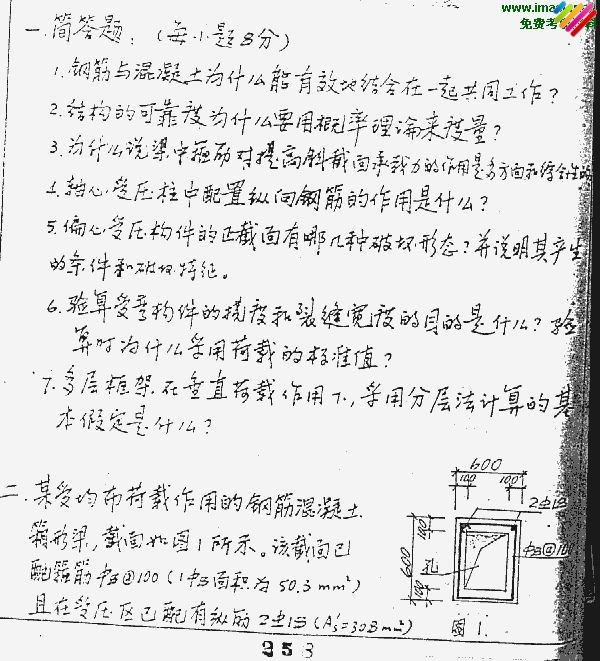 www.ima
免费考
一.简答题:(每小题8分)
1.钢筋与混凝土为什么能有效地结合在一起共同工作?
2.结构的可靠度为什么要用概率理论来度量?
3.为什么说梁中箍筋对提高斜截面承载力的作用是多方面和综合性的
4.轴心受压柱中配置纵向钢筋的作用是什么?
5.偏心受压构件的正截面有哪几种破坏形态?并说明其产生
的条件和破坏特征。
6.验算受弯构件的挠度和裂缝宽度的目的是什么?验
算时为什么采用荷载的标准值?
7.多层框架在垂直荷载作用下,采用分层法计算的基
本假定是什么?
二.某受均布荷载作用的钢筋混凝土
箱形梁,截面如图1所示。该截面已
配箍筋φ8@100(1φ8面积为50.3mm²)
且在受压区已配有纵筋2Φ18(A's=308mm²)
600
100 100
2Φ1
100
φ8@10
600
孔
100
图1.
358